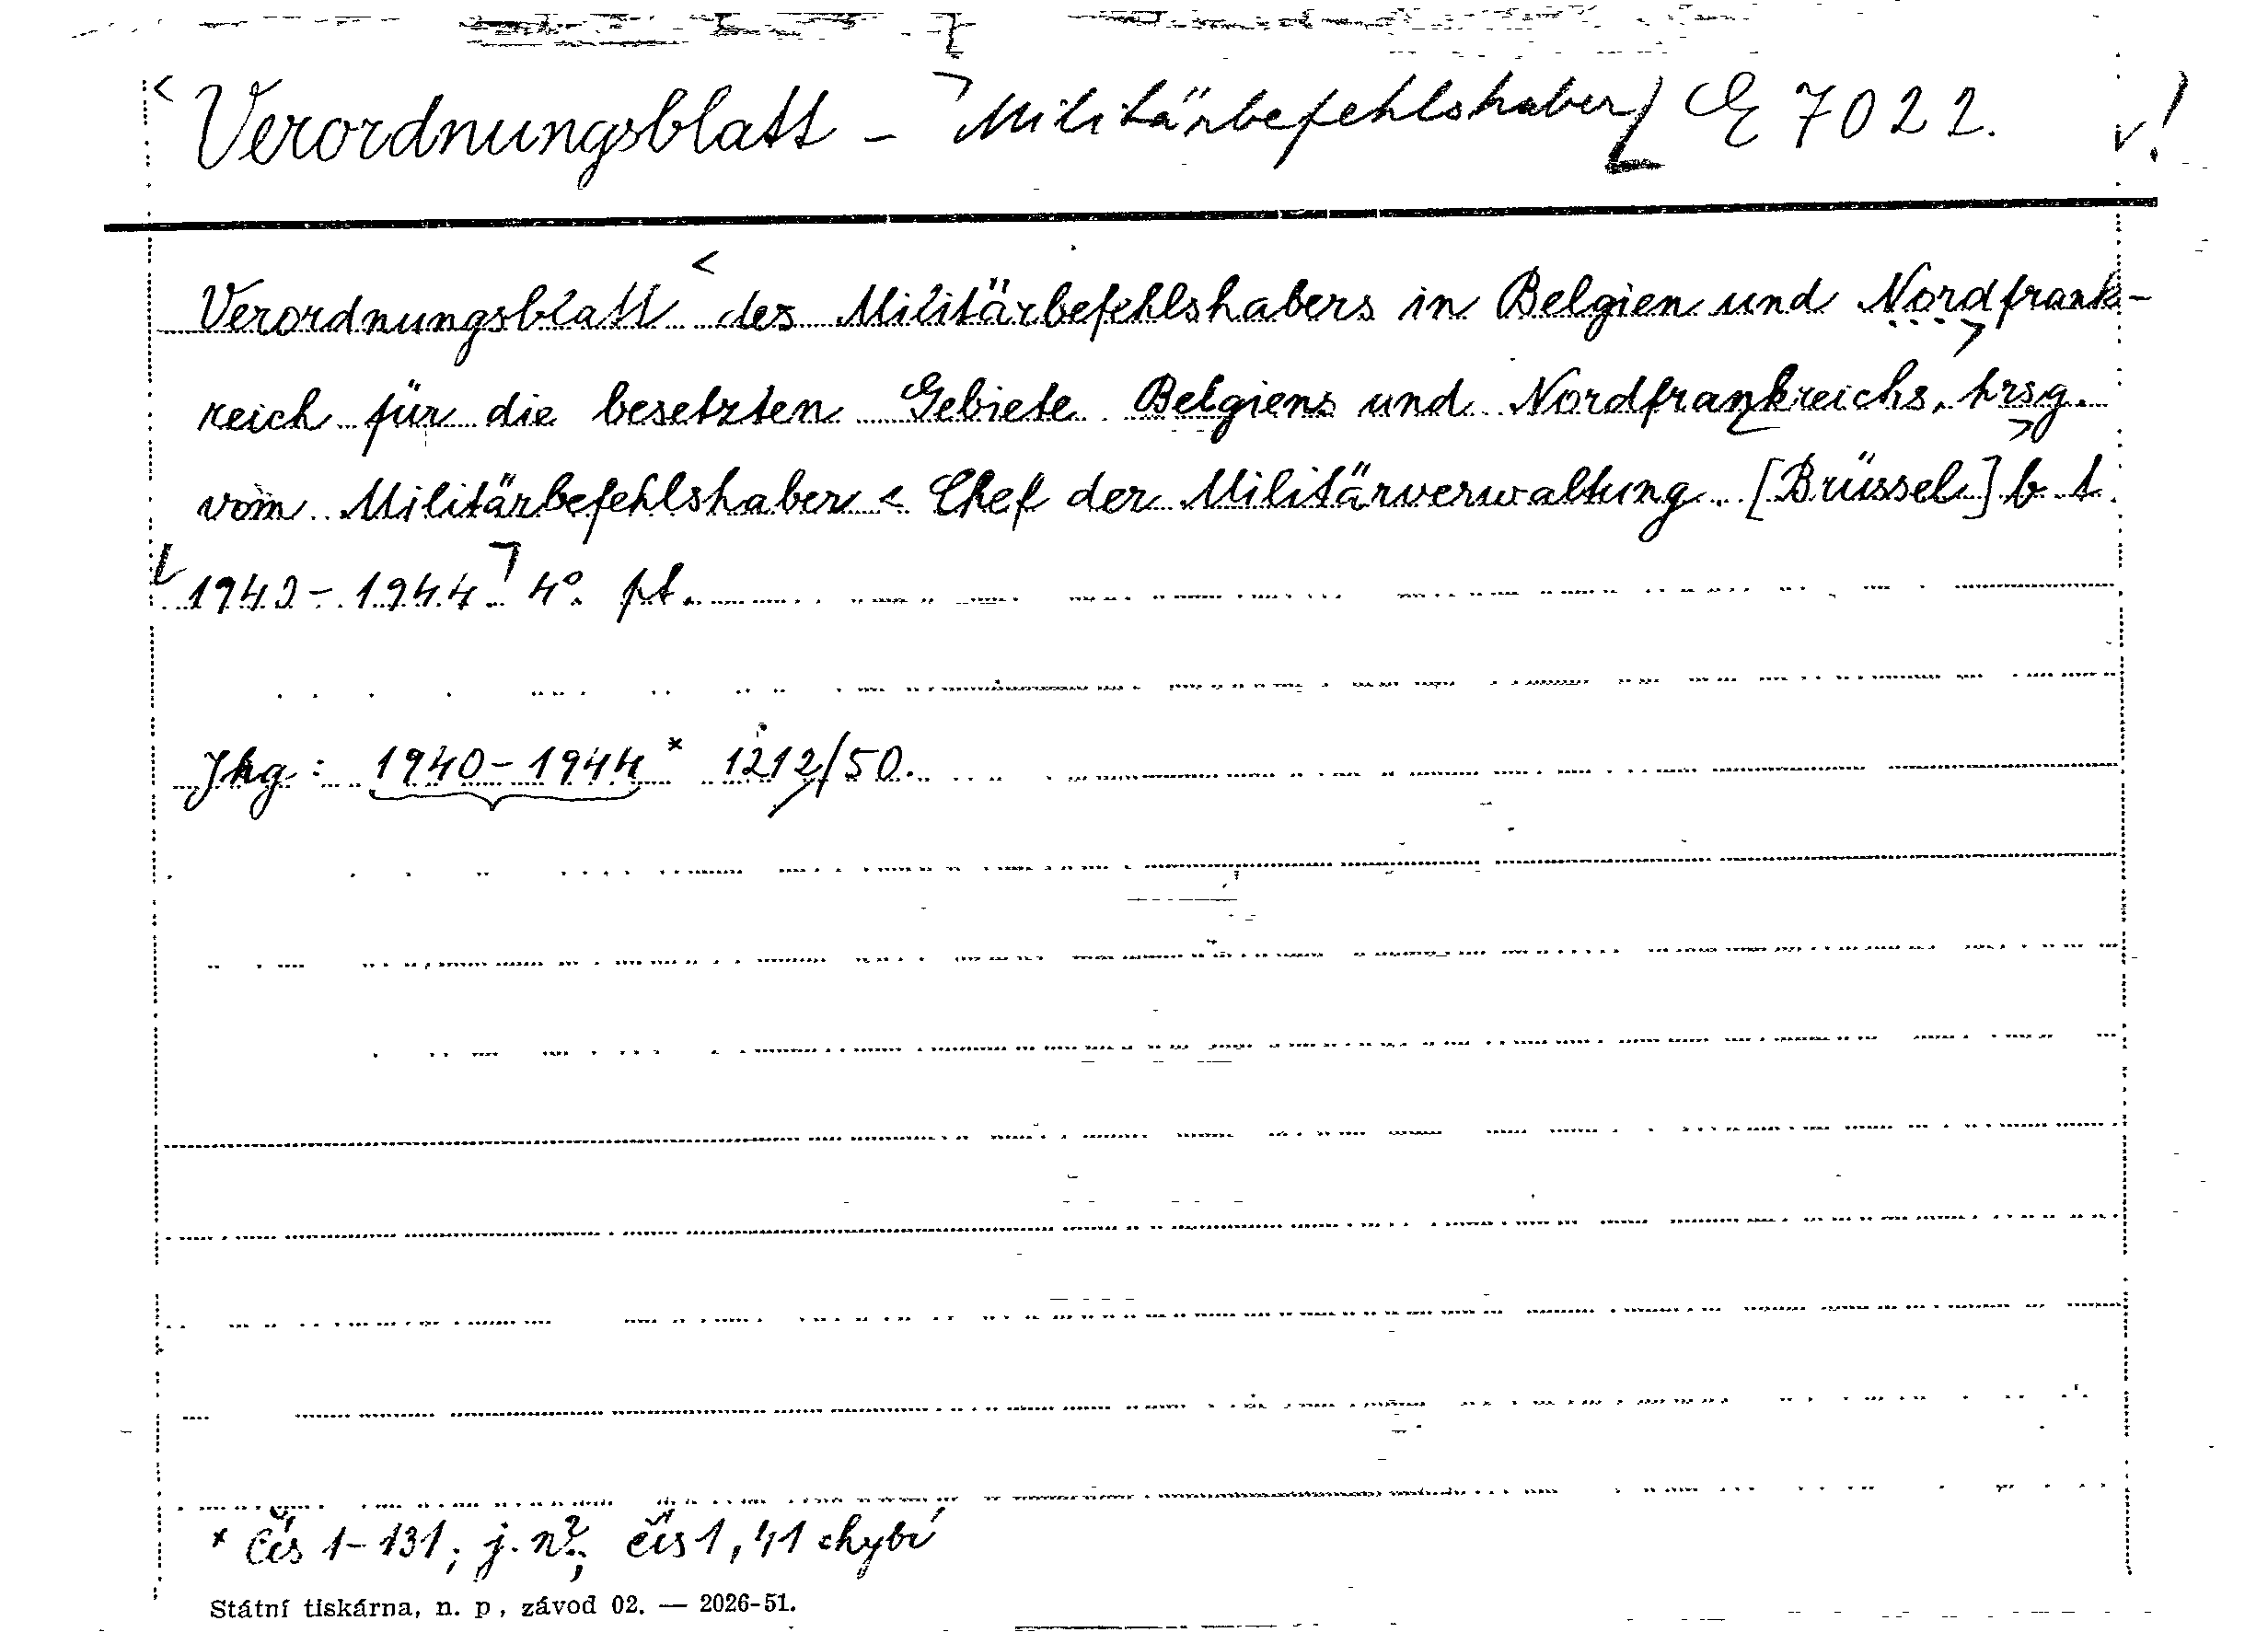 Verordnungsblatt - Militärbefehlshaber E 7022.
Verordnungsblatt des Militärbefehlshabers in Belgien und Nordfrank-
reich für die besetzten Gebiete Belgiens und Nordfrankreichs, hrsg.
vom Militärbefehlshaber < Chef der Militärverwaltung. [Brüssel] b. t.
1940 - 1944. 4°. pt.
Jhg: 1940 - 1944 * 1212/50.
* čís 1-131; j. n.; čís 1, 41 chybí
Státní tiskárna, n. p., závod 02. — 2026-51.